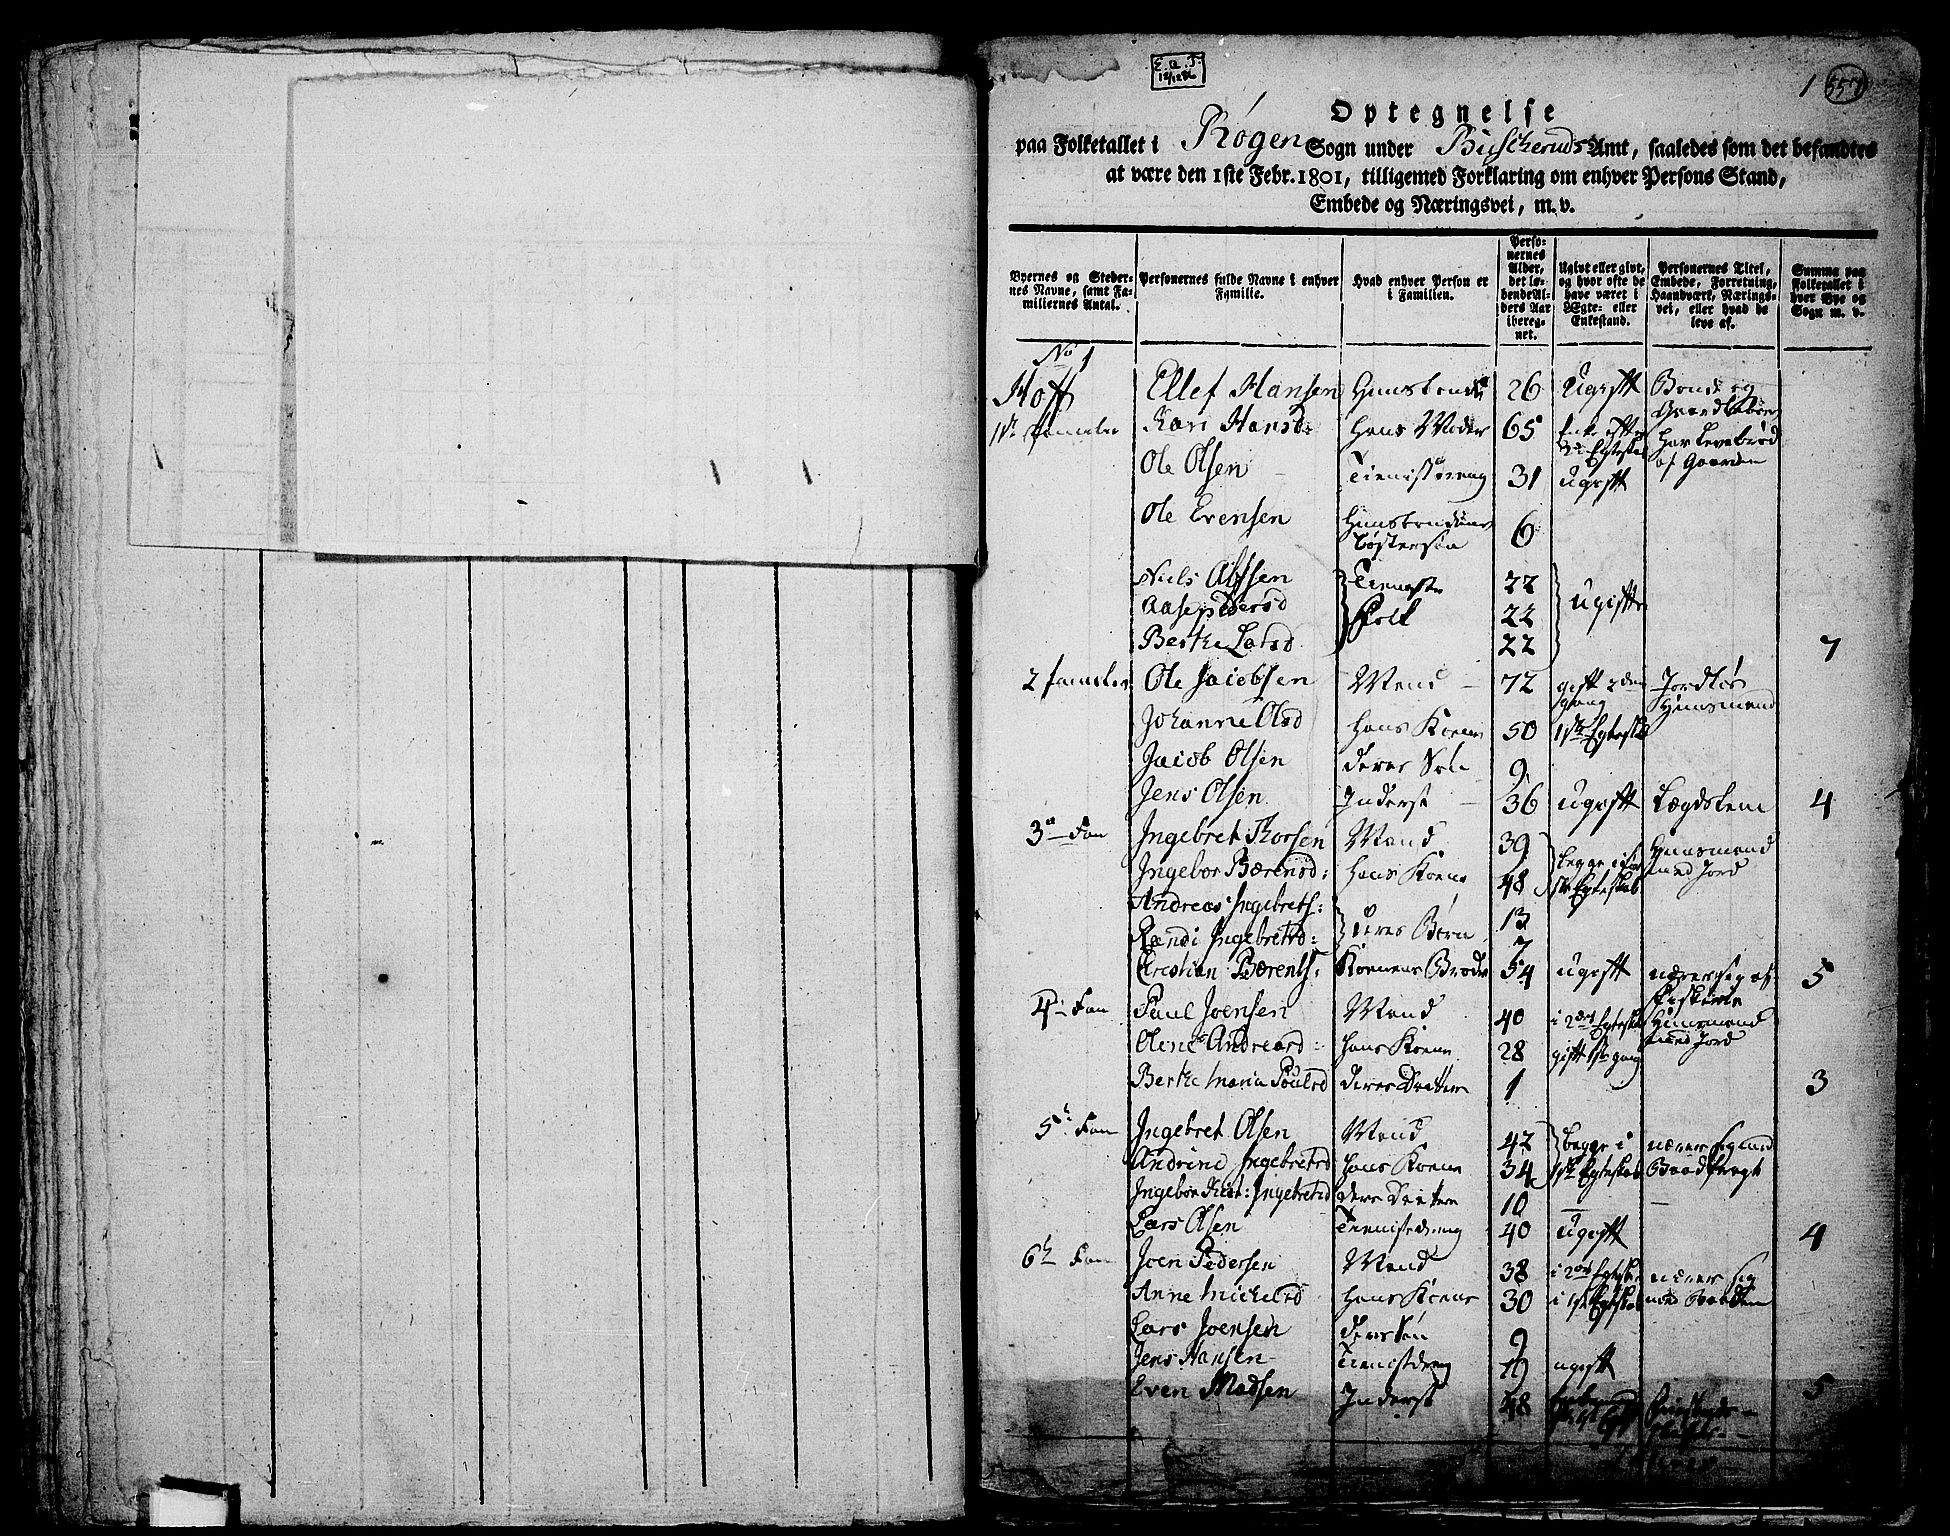 1 557
Optegnelse
paa Folketallet i Røgen Sogn under Buscheruds Amt, saaledes som det befandtes
at være den 1ste Febr. 1801, tilligemed Forklaring om enhver Persons Stand,
Embede og Næringsvei, m. v.
Byernes og Stedernes Navne, samt Familiernes Antal.
Personernes fulde Navne i enhver Familie.
Hvad enhver Person er i Familien.
Personernes Alder, det løbende Alders Aar iberegnet.
Ugivt eller givt, og hvor ofte de have været i Ægte- eller Enkestand.
Personernes Titel, Embede, Forretning, Haandværk, Næringsvei, eller hvad de leve af.
Summa paa Folketallet i hver Bye og Sogn m. v.
No 1
Hoff Ellef Hansen Huusbonde 26 Ugift Bonde og Gaardbeboer
1ste Familie Kari Hansd: hans Moder 65 Enke efter Egteskab har Levebrød af Gaarden
Ole Olsen Tienistdreng 31 ugift
Ole Evensen Huusbondens Søstersøn 6
Niels Olssen Tieneste 22 ugifte
Aase Pedersd Folk 22
Berthe Larsd 22 7
2 familie Ole Jacobsen Mand 72 gift 2den gang Jordløs Huusmand
Johanne Olsd hans Kone 50 1ste Egteskab
Jacob Olsen deres Søn 9
Jens Olsen Inderst 36 ugift Lægdslem 4
3de Fam Ingebret Thorsen Mand 39 begge i før Huusmand
Ingebor Bærensd: hans Kone 48 ste Egteskab med Jord
Andreas Ingebrets: deres Børn 13
Randi Ingebretsd: 7
Christian Bærents: Konens Broder 54 ugift nærer sig af Fiskerie 5
4de Fam Paul Joensen Mand 40 i 2det Egteskab Huusmand
Olene Andreasd: hans Kone 28 gift 1ste gang med Jord
Berthe Maria Poulsd deres Datter 1 3
5te Fam Ingebret Olsen Mand 42 begge i nærer sig med
Andrine Ingebretsd hans Kone 34 1ste Egteskab
Ingebor Kirst: Ingebretsd deres Datter 10
Lars Olsen Tienistedreng 40 ugift 4
6te Fam Joen Pedersen Mand 38 i 2det Egteskab nærer sig
Anne Michelsd hans Kone 30 i 1ste Egteskab med
Lars Joensen deres Søn 9
Jens Hansen Tienistdreng 19 ugift
Even Madsen Inderst 48 5